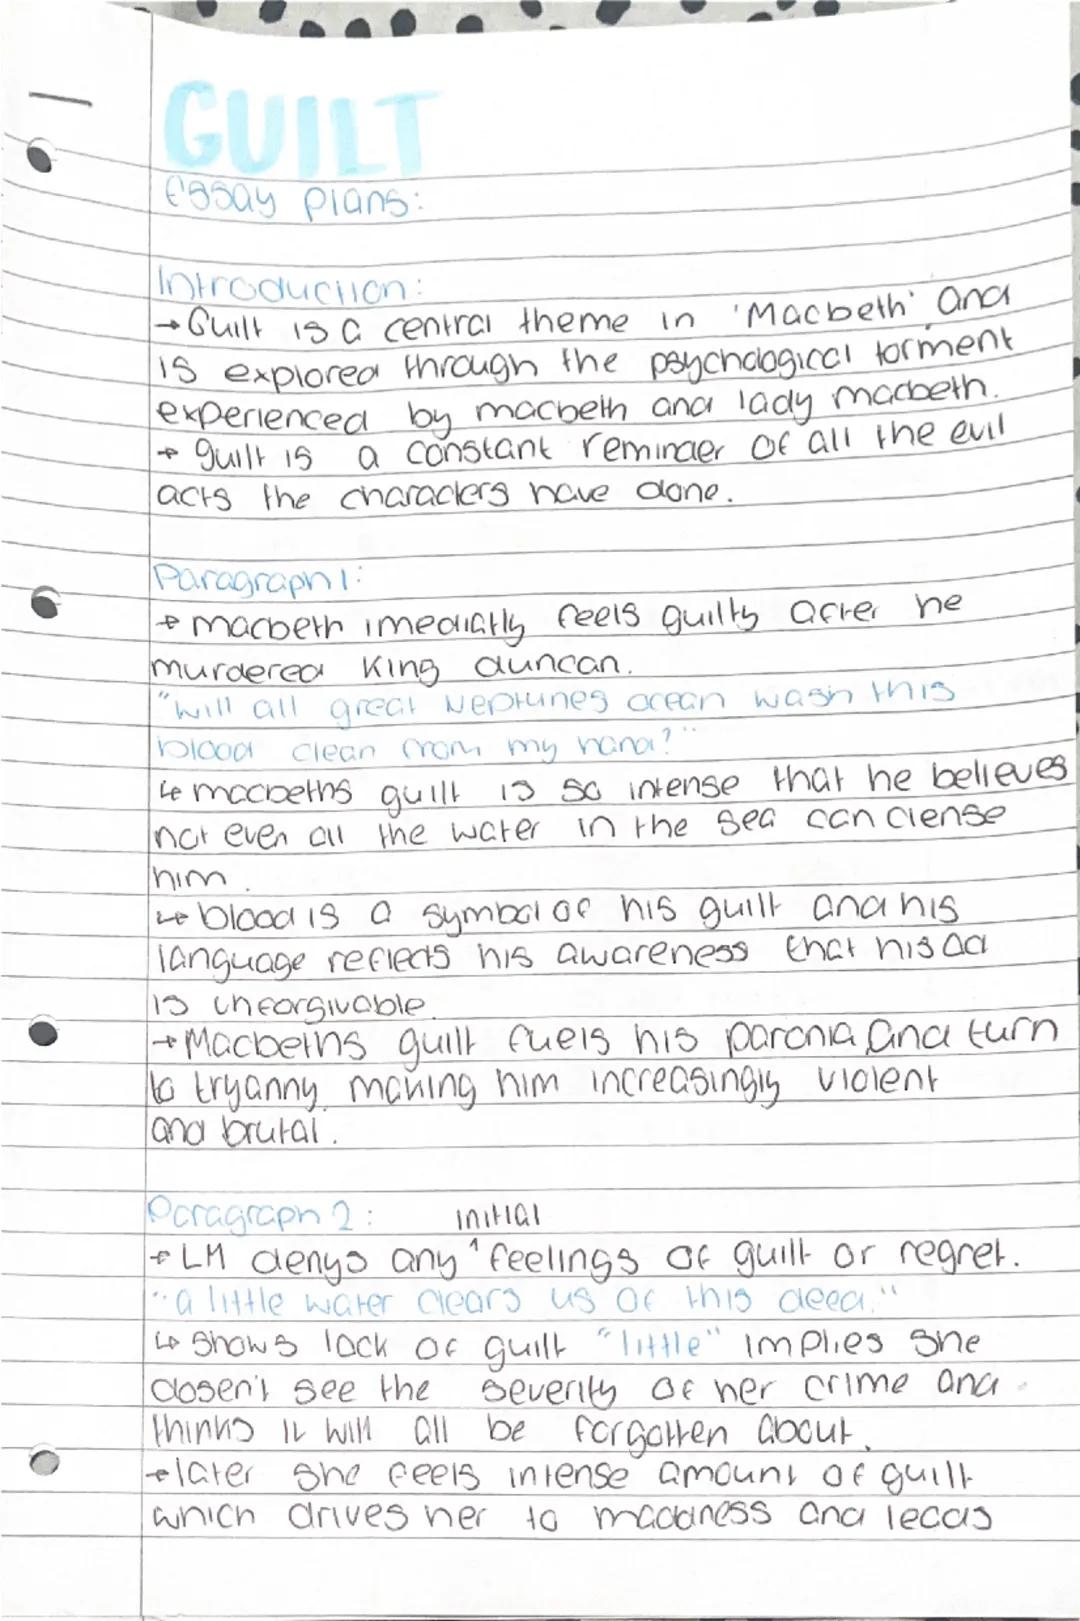 GUILT
essay plans:
Introduction:
→ Guilt is a central theme in 'Macbeth' and
is explored through the psychological torment
experienced by macbeth and lady macbeth.
→ guilt is a constant reminder of all the evil
acts the characters have done.
Paragraph 1:
→ macbeth imediatly feels guilty after he
murdered King duncan.
"will all great Neptunes ocean wash this
blood clean from my hand?"
↳ macbeths guilt is so intense that he believes
not even all the water in the sea can clense
him.
↳ blood is a symbol of his guilt and his
language reflects his awareness that his act
is unforgivable.
→ Macbeths guilt fuels his parania and turn
to tryanny making him increasingly violent
and brutal.
Paragraph 2:
initial
→ LM denys any ^ feelings of guilt or regret.
"a little water clears us of this deed."
↳ shows lack of guilt "little" implies she
dosen't see the severity of her crime and
thinks it will all be forgotten about.
→ later she feels intense amount of guilt
which drives her to maddness and leads